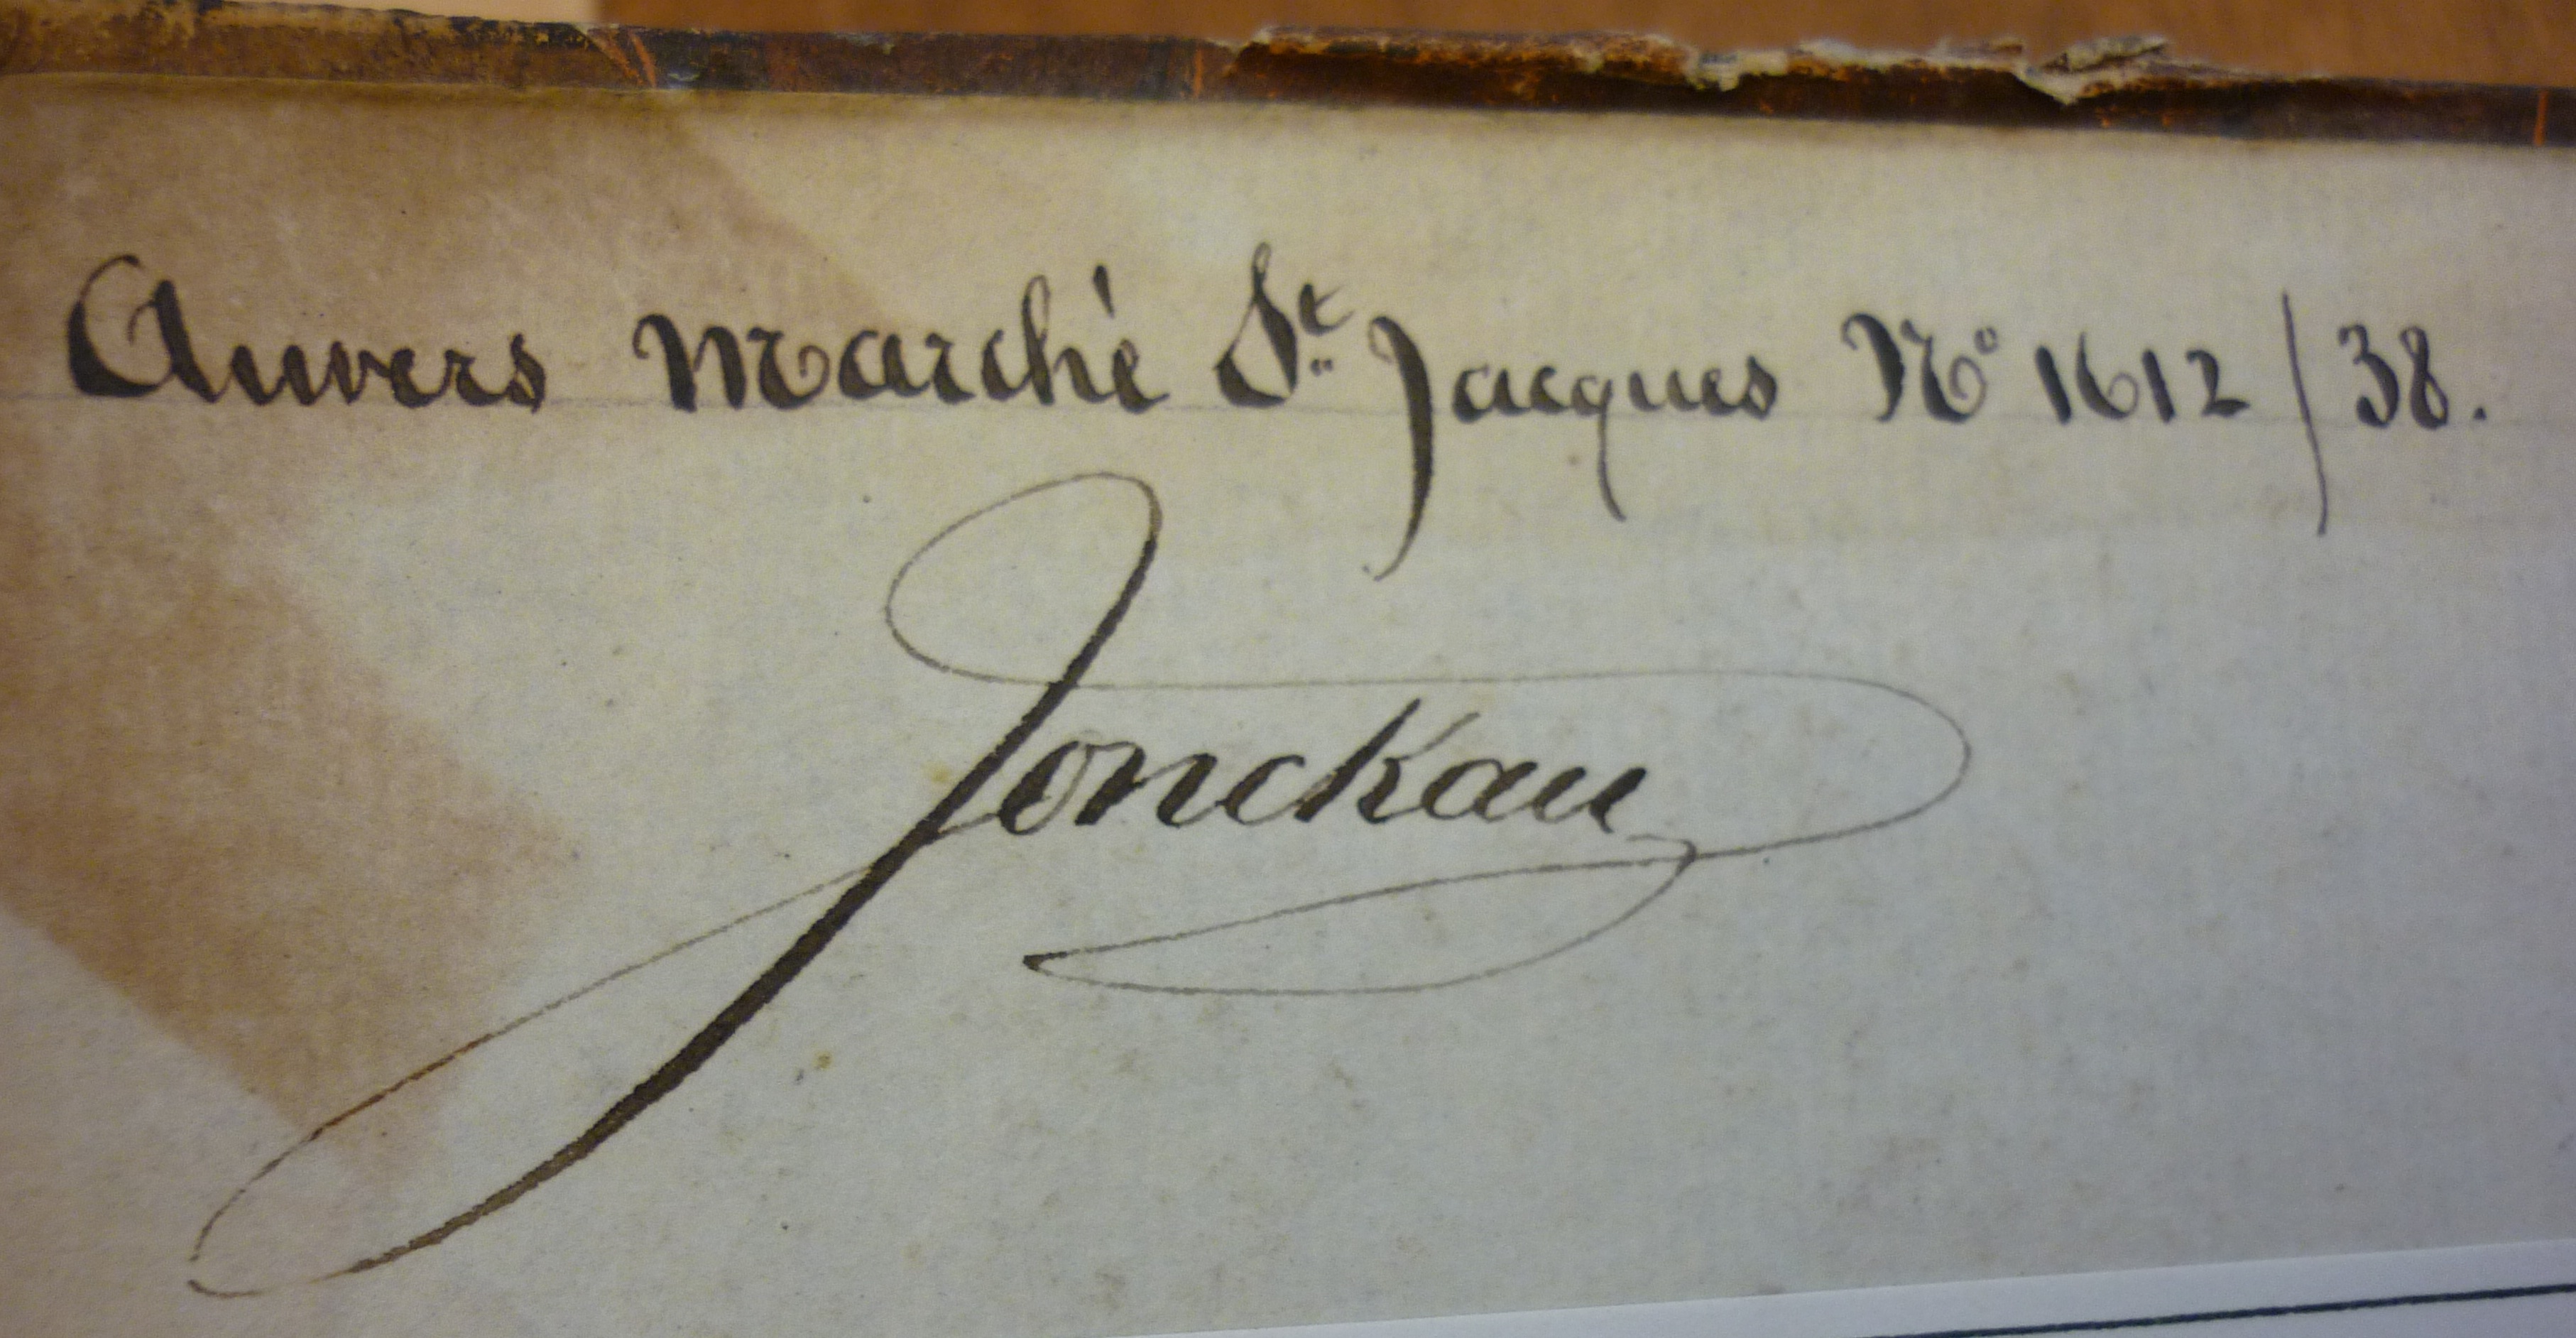 Anvers Marché St. Jacques No 1612/38.
Jonckau